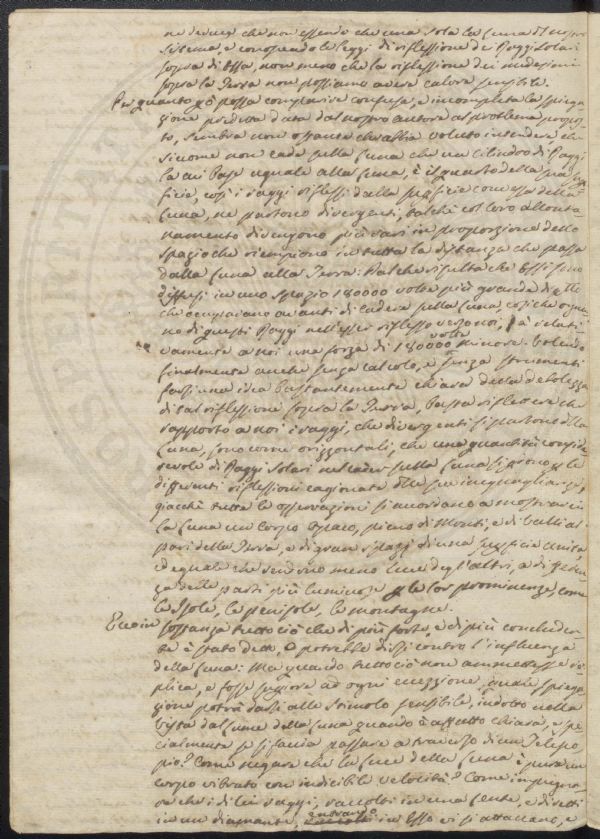 che non essendo che una sola la Luna il nostro
sistema, e conoscendo le leggi di riflessione dei Raggi Solari
sopra di Essa, non meno che la riflessione dei medesimi
sopra la Terra non possiamo avere calore sensibile.
Per quanto però possa comparire confusa, e incompleta la spiega
zione data dal nostro autore al problema propos
to, sembra non ostante che abbia voluto intendere che
siccome non cade sulla Luna che un cilindro di Raggi
la cui base uguale alla Luna, è il quarto della sua super
ficie, così i raggi riflessi dalla superficie convessa della
Luna, ne partono divergenti, talchè col loro allonta
namento divengono più rari in proporzione dello
spazio che riempiono in tutta la distanza che passa
dalla Luna alla Terra: Dal che risulta che Essi sono
diffusi in uno spazio 180000 volte più grande di quello
che occupavano avanti di cadere sulla Luna, cosichè ognu
no di questi Raggi nell'esser riflesso verso noi, à relati
vamente a noi una forza di 180000 volte minore. Volendo
finalmente anche senza calcolo, e senza strumenti
farsi una idea bastantemente chiara della debolezza
di tal riflessione sopra la Terra, basta riflettere che
rapporto a noi i raggi, che divergenti si partono dalla
Luna, sono come orizzontali, che una quantità conside
revole di Raggi Solari nel cader sulla Luna si per
differenti riflessioni cagionate dalle sue ineguaglianze,
giacchè tutte le osservazioni si accordano a mostrarci
la Luna un Corpo Opaco, pieno di Monti, e di Valli al
pari della Terra, e di gran spazi di una superficie unita
ed eguale che rendono meno luce degl'altri, a differen
za delle parti più luminose per le lor prominenze, come
le Isole, le penisole, le montagne.
Eccoin sostanza tutto ciò che di più forte, e di più concluden
te è stato detto, o potrebbe dirsi contro l'influenza
della Luna: Ma quando tutto ciò non ammettesse re
plica, e fosse superiore ad ogni eccezzione, quale spiega
zione potrà darsi allo stimolo sensibile, indotto nella
vista dal lume della Luna quando è affatto chiara, e spe
cialmente se si faccia passare a traverso di un Telesco
pio? Come negare che la luce della Luna è pure un
corpo vibrato con indicibile velocità? Come impugna
re che i di lei raggi, raccolti in una Lente, e diretti
in un diamante, entrando in Esso vi si attaccano, e